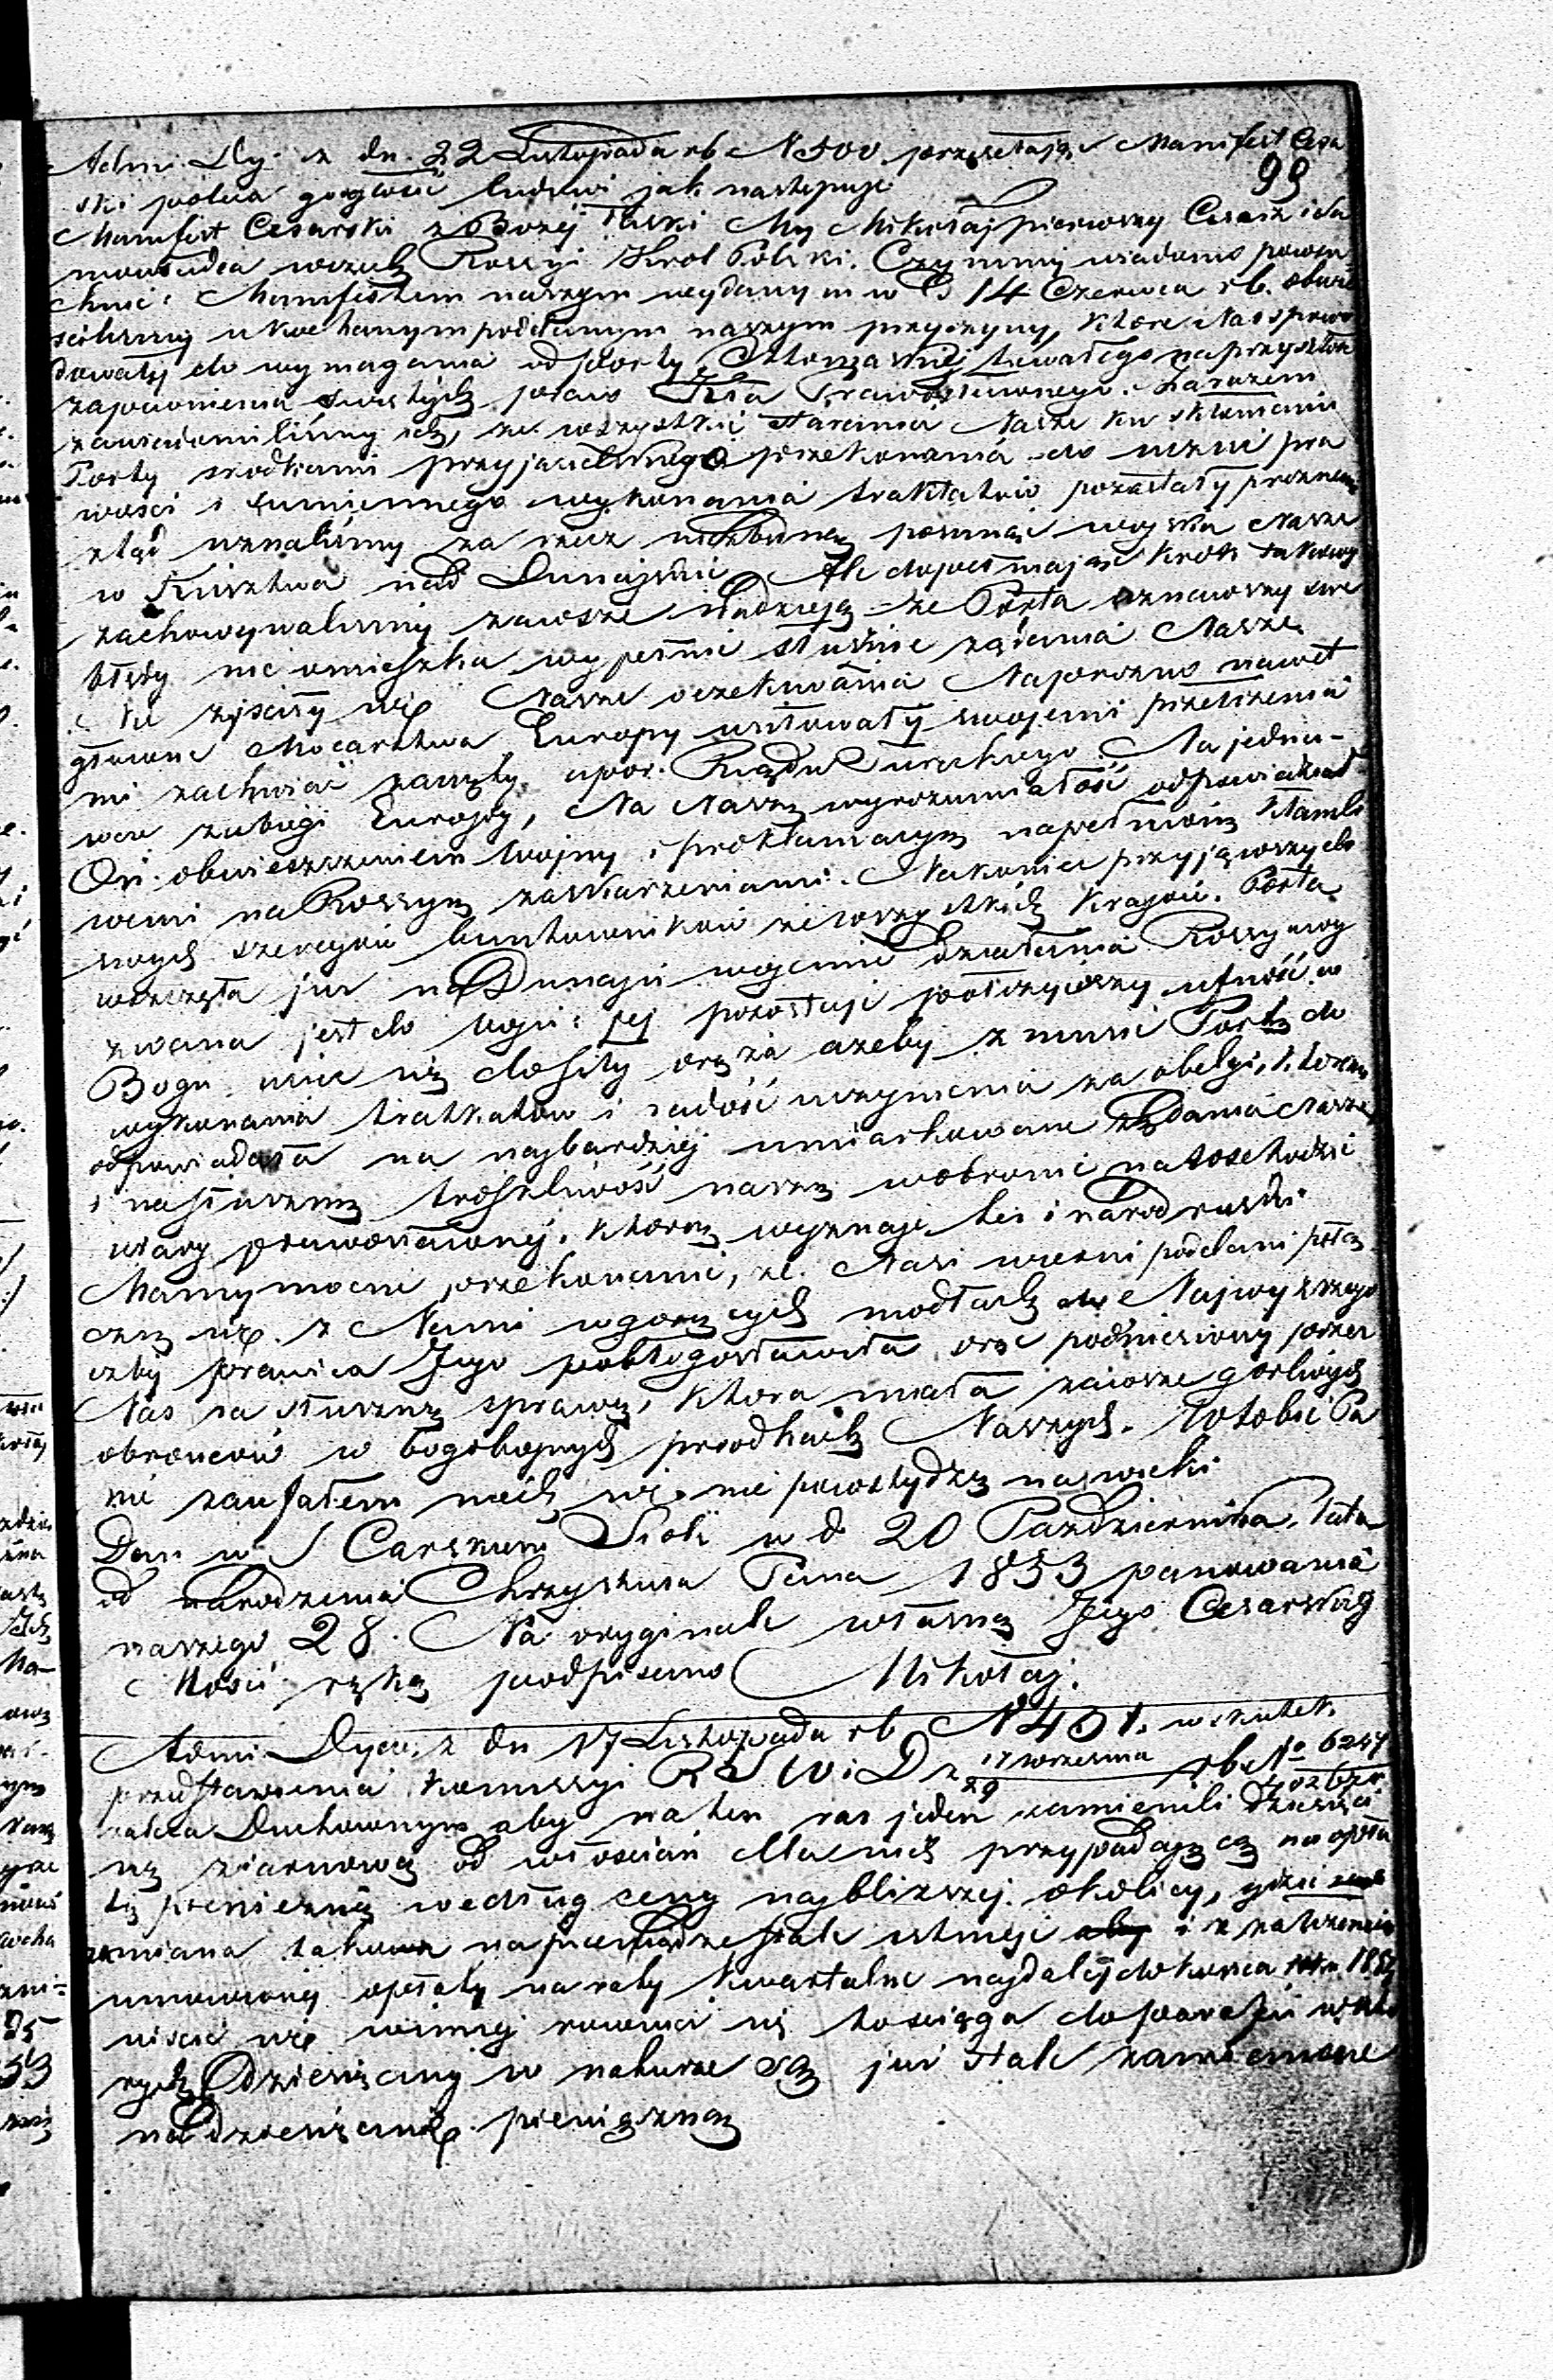 Admi. Dy. z dn. 22 Listopada rb N 500 przesełając Manifest Cesa
99
ski poleca go głosić ludowi jak następuje
Manifest Cesarski z Bożej łaski My Mikołaj pierwszy Cesarz i Sa
mowładca wszech Rossyi Król Polski. Czynimy wiadomo powsze
chnie: Manifestem naszym wydanym w D 14 Czerwca rb. obwie
ściliśmy ukochanym poddanym naszym przyczyny, które Nas spowo
dowały do wymagania od Porty Ottomańskiej trwałego na przyszłość
zapewnienia świętych praw Kła Prawosławnego. Zarazem
zawiadomiliśmy ich, że wszystkie starania Nasze ku skłonieniu
Porty srodkami przyjacielskiego przekonania do uczuć pra
wości i sumiennego wykonania traktatów pozostały prożnemi
ztąd uznaliśmy za rzecz niezbędną posunąć wojska Nasze
w Księztwa nad Dunajskie. Ale przedsiębiorąc krok takowy
zachowywaliśmy zawsze nadzieją że Porta uznawszy swe
błędy nie omieszka wypełnić słuszne żądania Nasze.
Nie ziściły się Nasze oczekiwania Naprozno nawet
główne Mocarstwa Europy usiłowały swojemi przełożenia
mi zachwiać zawzięty upór Rządu Tureckiego. Na jedno-
we zabiegi Europy, Na Naszą wyrozumiałość odpowiedział
On obwieszczeniem wojny i proklamacyą napełnioną kłamli
wemi na Rossyą zaskarżeniami. Nakoniec przyjąwszy do
swych szeregów buntowników ze wszystkich krajów. Porta
wszczęła już na Dunaju wojenne działania Rossya wy
zwana jest do boju: jej pozostaje położywszy ufność w
Bogu uciec się do siły oręża ażeby zmusić Portę do
wykonania traktatów i zadość uczynienia za obelgi, którem
odpowiadała na najbardziej umiarkowane żądania Nasze
i na słuszną troskliwość naszą w obronie na wschodzie
wiary prawosławnej, którą wyznaje też i naród ruski
Mamy mocne przekonanie, że Nasi wierni poddani połą
czą się z Nami w gorących modłach do Najwyższego
ażby prawica Jego pobłogosławiła oręż podniesiony przez
Nas za słuszną sprawę, która miała zawsze gorliwych
obrońców w bogobojnych przodkach Naszych. W tobie Pa
nie zaufałem niech się nie powstydzę na wieki
Dan w Carskiem Siole w d 20 Pazdziernika, lata
od narodzenia Chrystusa Pana 1853 panowania
naszego 28. Na oryginale własną Jego Cesarskiej
Mości ręką podpisano Mikołaj.
Admi Dyec. z dn 17 Listopada rb N 401. w skutek
przedstawienia Kommissyi R S W i D z 17/29 wrzesnia rb No 6247/
zaleca Duchownym aby na ten raz jeden zamienili dziesięci
nę ziarnową od włościan Im przypadającą na opła
tę pieniężną według ceny najbliższej okolicy, gdzie
zamiana takowa na pieniądze stale istnieje i z
umowionej opłaty na raty kwartalne najdalej do końca
uiscić się winnej rowniez się to ściąga do parafii w któ
rych Dziesięciny w naturze są już stale zamienione
na Dziesięcinę pieniężną